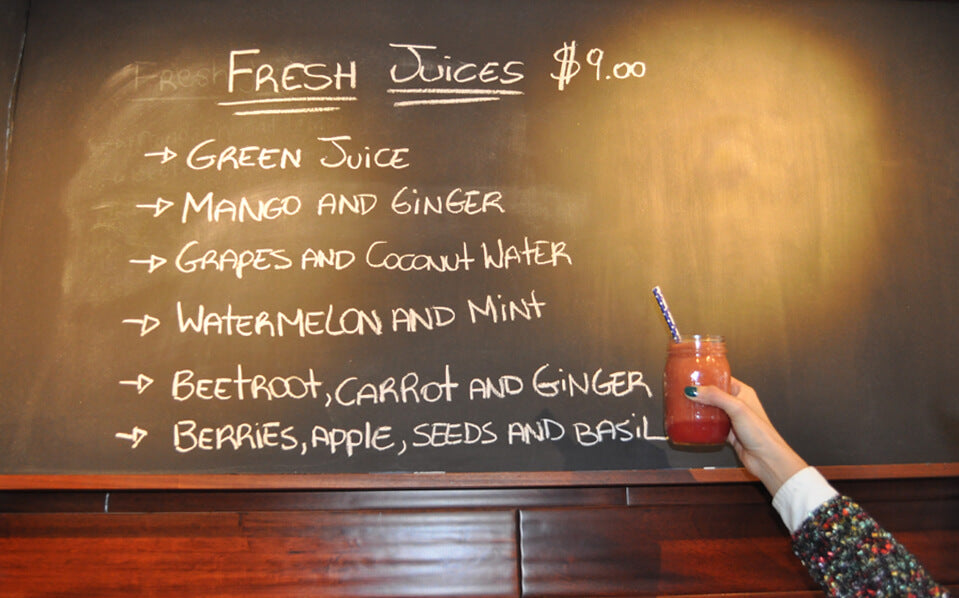 FRESH JUICES $9.00
→ GREEN JUICE
→ MANGO AND GINGER
→ GRAPES AND COCONUT WATER
→ WATERMELON AND MINT
→ BEETROOT, CARROT AND GINGER
→ BERRIES, APPLE, SEEDS AND BASIL